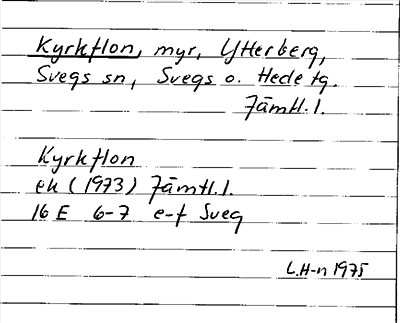 Kyrkflon, myr, Ytterberg,
Svegs sn, Svegs o. Hede tg.
Jämtl. l.
Kyrkflon
ek (1973) Jämtl. l.
16 E 6-7 e-f Sveg
L.H-n 1975